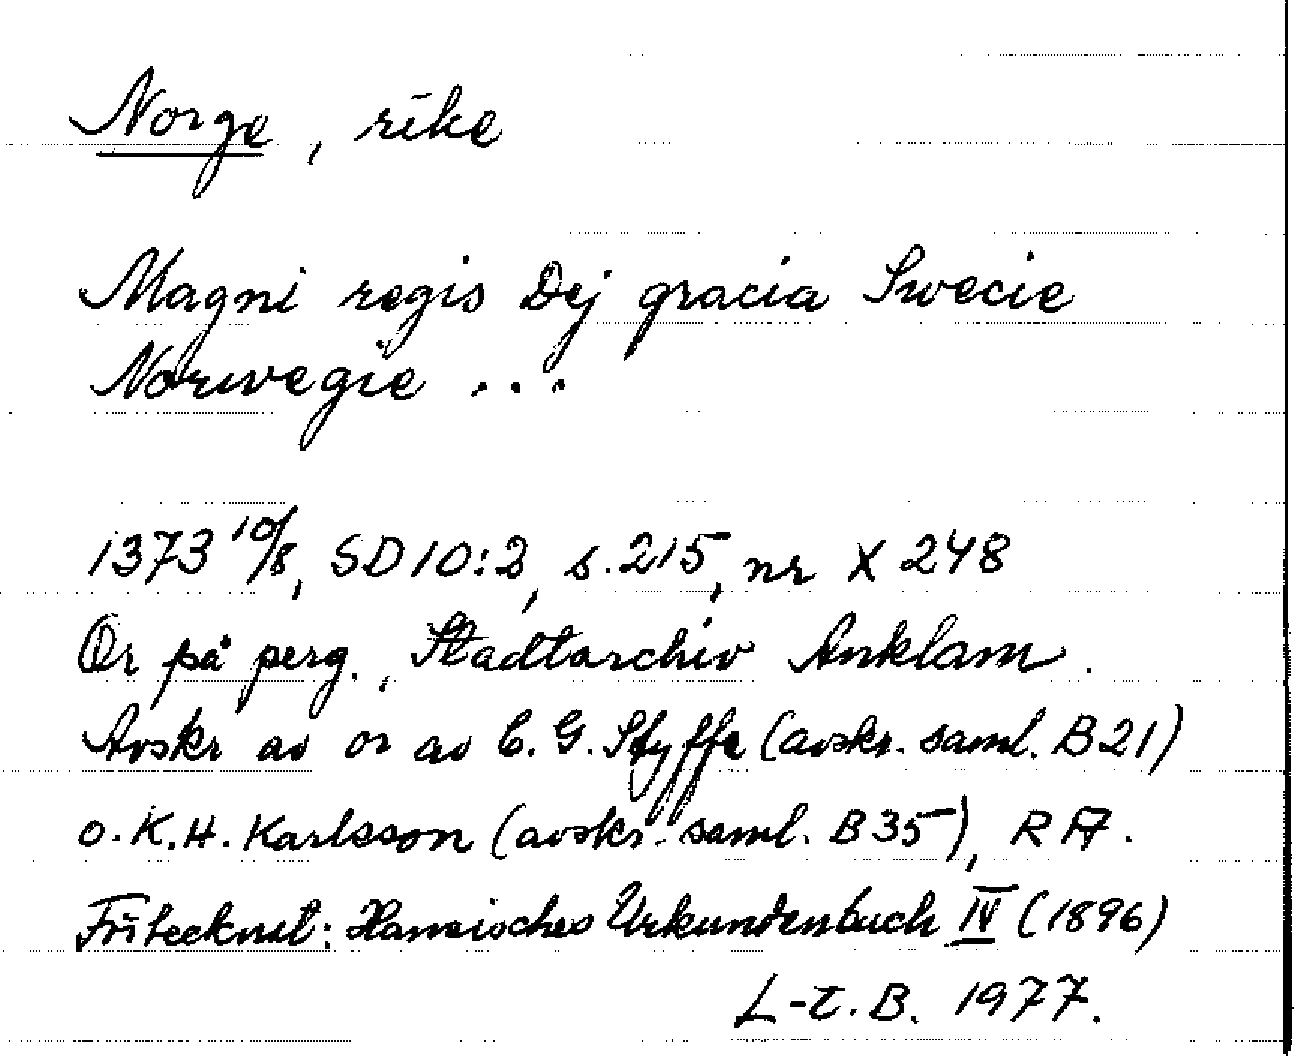 Norge, rike
Magni regis Dej gracia Swecie
Norwegie ...
1373 10/8, SD 10:2, s. 215, nr X 248
Or på perg., Stadtarchiv Anklam.
Avskr av or av C. G. Styffe (avskr. saml. B 21)
o. K. H. Karlsson (avskr. saml. B 35), RA.
Förtecknat: Hansisches Urkundenbuch IV (1896)
L-t. B. 1977.